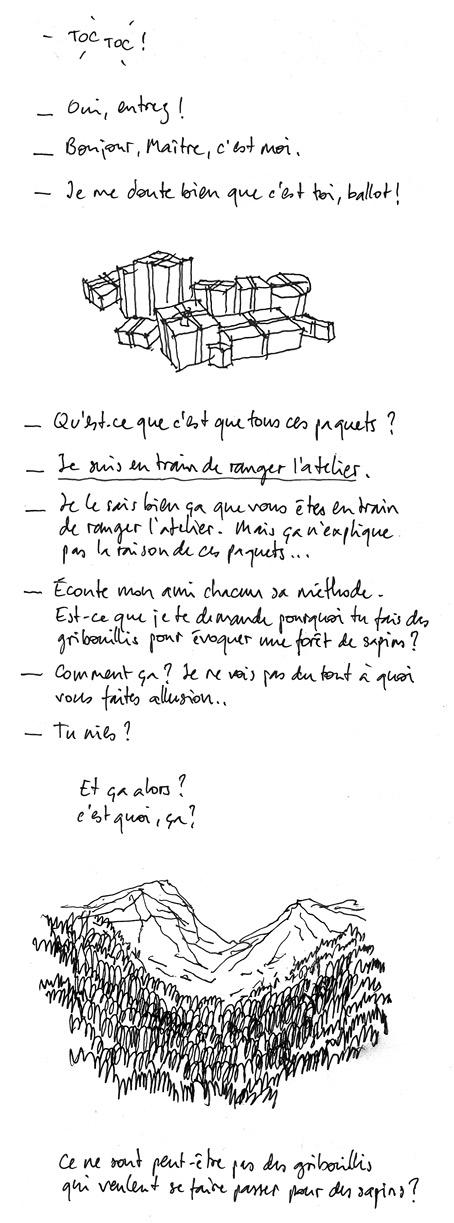 - TOC TOC !
— Oui, entrez !
— Bonjour, Maître, c'est moi.
— Je me doute bien que c'est toi, ballot !
— Qu'est-ce que c'est que tous ces paquets ?
— Je suis en train de ranger l'atelier.
— Je le sais bien ça que vous êtes en train
de ranger l'atelier. Mais ça n'explique
pas la raison de ces paquets...
— Écoute mon ami chacun sa méthode.
Est-ce que je te demande pourquoi tu fais des
gribouillis pour évoquer une forêt de sapins ?
— Comment ça ? Je ne vois pas du tout à quoi
vous faites allusion..
— Tu nies ?
Et ça alors ?
c'est quoi, ça ?
Ce ne sont peut-être pas des gribouillis
qui veulent se faire passer pour des sapins ?